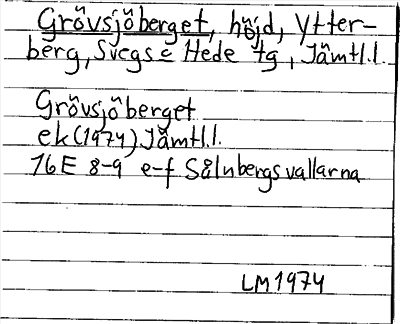 Grövsjöberget, höjd, Ytter-
berg, Svegs o Hede tg, Jämtl.l.
Grövsjöberget
ek (1974) Jämtl.l.
16E 8-9 e-f Sålnbergsvallarna
LM1974